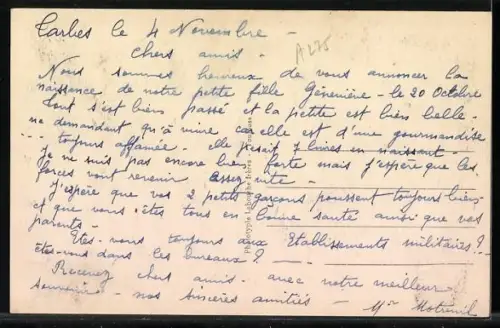 Tarbes le 4 Novembre -
A275
Chers amis -
Nous sommes heureux de vous annoncer la
naissance de notre petite fille Géneviève - le 20 Octobre
tout s'est bien passé et la petite est bien belle -
ne demandant qu'à vivre car elle est d'une gourmandise
... toujours affamée. elle pesait 7 livres en naissant -
je ne suis pas encore bien forte mais j'espère que les
forces vont revenir assez vite -
j'espère que vos 2 petits garçons poussent toujours bien
et que vous êtes tous en bonne santé ainsi que vos
parents -
Etes-vous toujours aux Etablissements militaires ?
êtes-vous dans les bureaux ? -
Recevez chers amis - avec notre meilleur
souvenir - nos sincères amitiés -
Phototypie